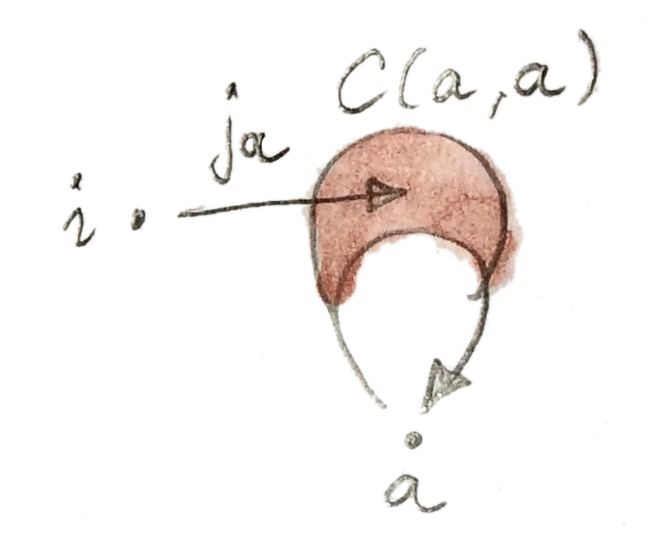 C(a, a)
ja
i
a